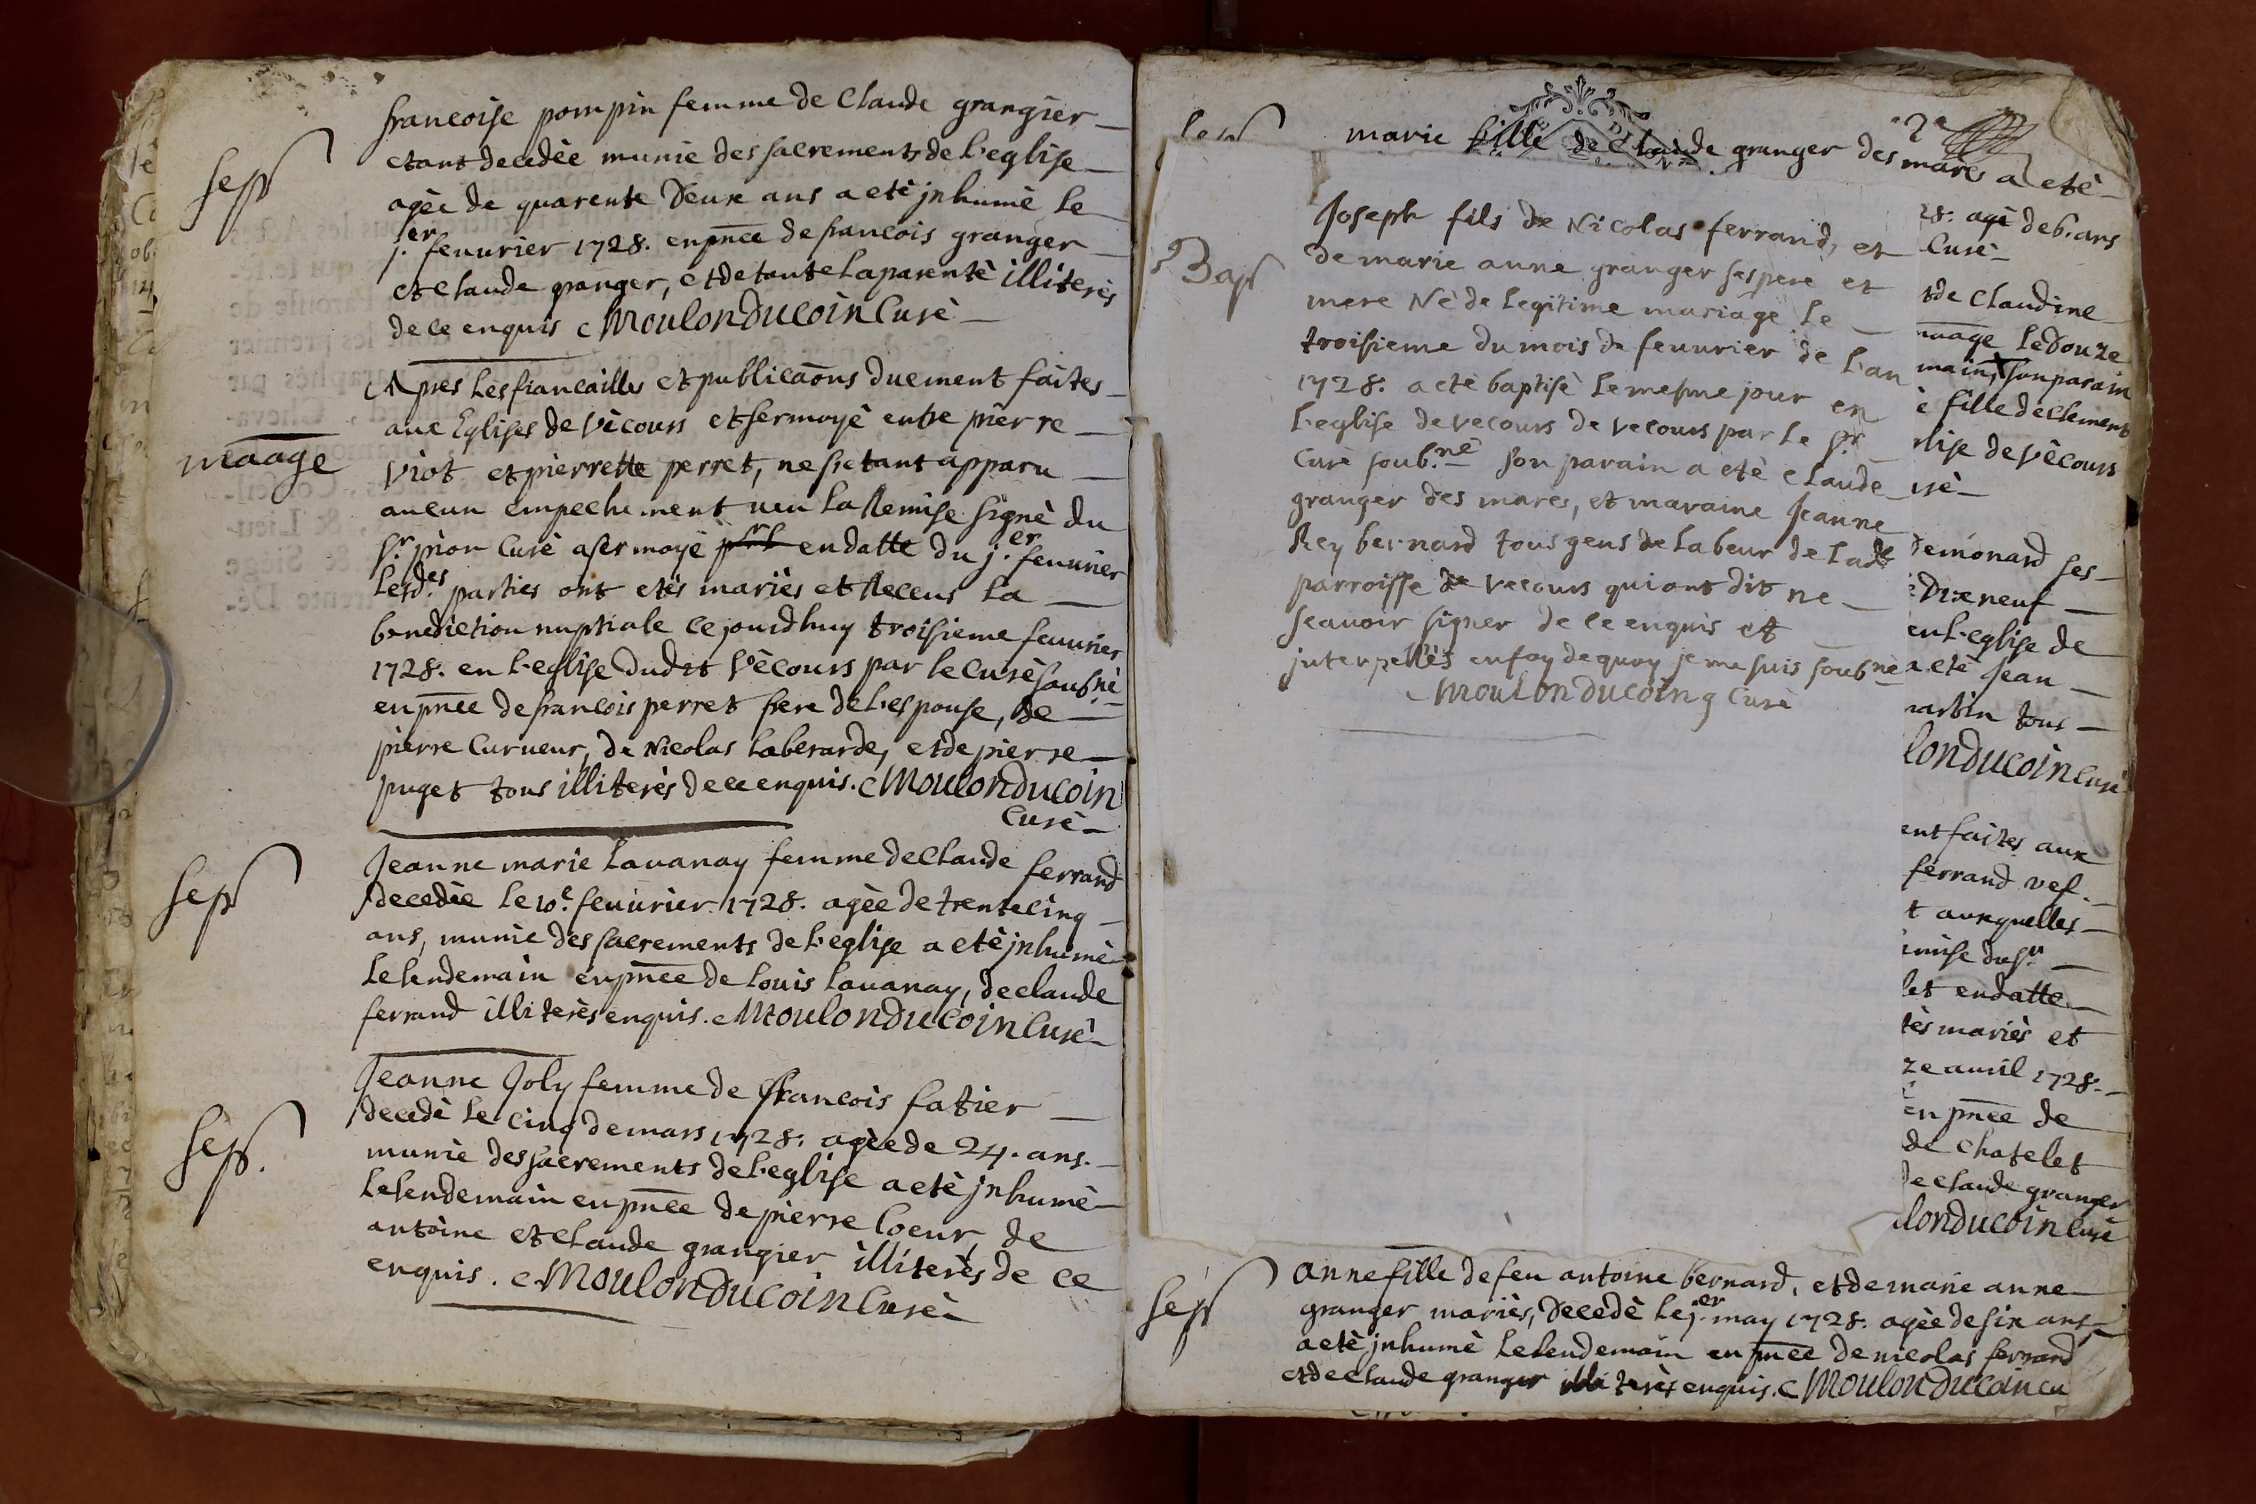 francoise pompin femme de Claude grangier
sep
etant decedèe munie des sacrements de l'eglise
agèe de quarente deux ans a etè jnhumè le
j.er feuurier 1728. en pnce de francois granger
et claude granger, et de toute la parentè illiterès
de ce enquis Moulonducoin Curè
Apres les fiancailles et publicaõns duement faites
aux Eglises de Vècours et sermoyè entre pierre
maage
Viot et pierrette perret, ne s'etant apparu
aucun empechement veu la Remise signè du
Sr. prior Curè a sermoyè en datte du j.er feuurier
Lesd.es parties ont etès mariès et Receus la
benediction nuptiale ce jourdhuy troisieme feuurier
1728. en l'eglise dudit Vècours par le Curè soub.nè
en pnce de francois perret frere de l'espouse, de
pierre Curueur, de Nicolas Laberarde, et de pierre
puget tous illiterès de ce enquis. Moulonducoin
Curè
Jeanne marie Lauanay femme de Claude ferrand
sep
decedèe le 10.e feuurier 1728. agèe de trente cinq
ans, munie des sacrements de l'eglise a etè jnhumè
le lendemain en pnce de Louis Lauanay, de claude
ferrand illiterès enquis. Moulonducoin Curè
Jeanne Joly femme de francois fatier
decedè le cinq de mars 1728. agèe de 24. ans.
sep.
munie des sacrements de l'eglise a etè jnhumè
le lendemain en pnce de pierre Coeur, de
antoine et claude grangier illiterès de ce
enquis. Moulonducoin Curè
2e
marie fille de Claude granger des mares a etè
28. agè de 6. ans
Curè
Joseph fils de Nicolas ferrand, et
Bap
de marie anne granger ses pere et
mere Nè de legitime mariage le
troisieme du mois de feuurier de l'an
1728. a etè baptisè le mesme jour en
l'eglise de vecours de vecours par le Sr.
Curè soub.nè son parain a etè claude
granger des mares, et maraine Jeanne
Rey bernard tous gens de labeur de lad.e
parroisse de vecours qui ont dit ne
scauoir signer de ce enquis et
jnterpellès en foy de quoy je me suis soub.nè
Moulonducoing Curè
t de Claudine
maage le douze
main, son parain
è fille de clement
lise de Vècours
urè
demonard ses
dix neuf
en l'eglise de
a etè Jean
martin tous
londucoin Curè
ent faites aux
ferrand vef.
t auxquelles
emise du Sr.
let en datte
tès mariès et
ze auril 1728.
en pnce de
de chatelet
de claude granger
londucoin Curè
anne fille de feu antoine bernard, et de marie anne
sep
granger mariès, decedè le j.er may 1728. agèe de six ans
a etè jnhumè le lendemain en pnce de nicolas ferrand
et de claude granger illiterès enquis. Moulonducoin cu